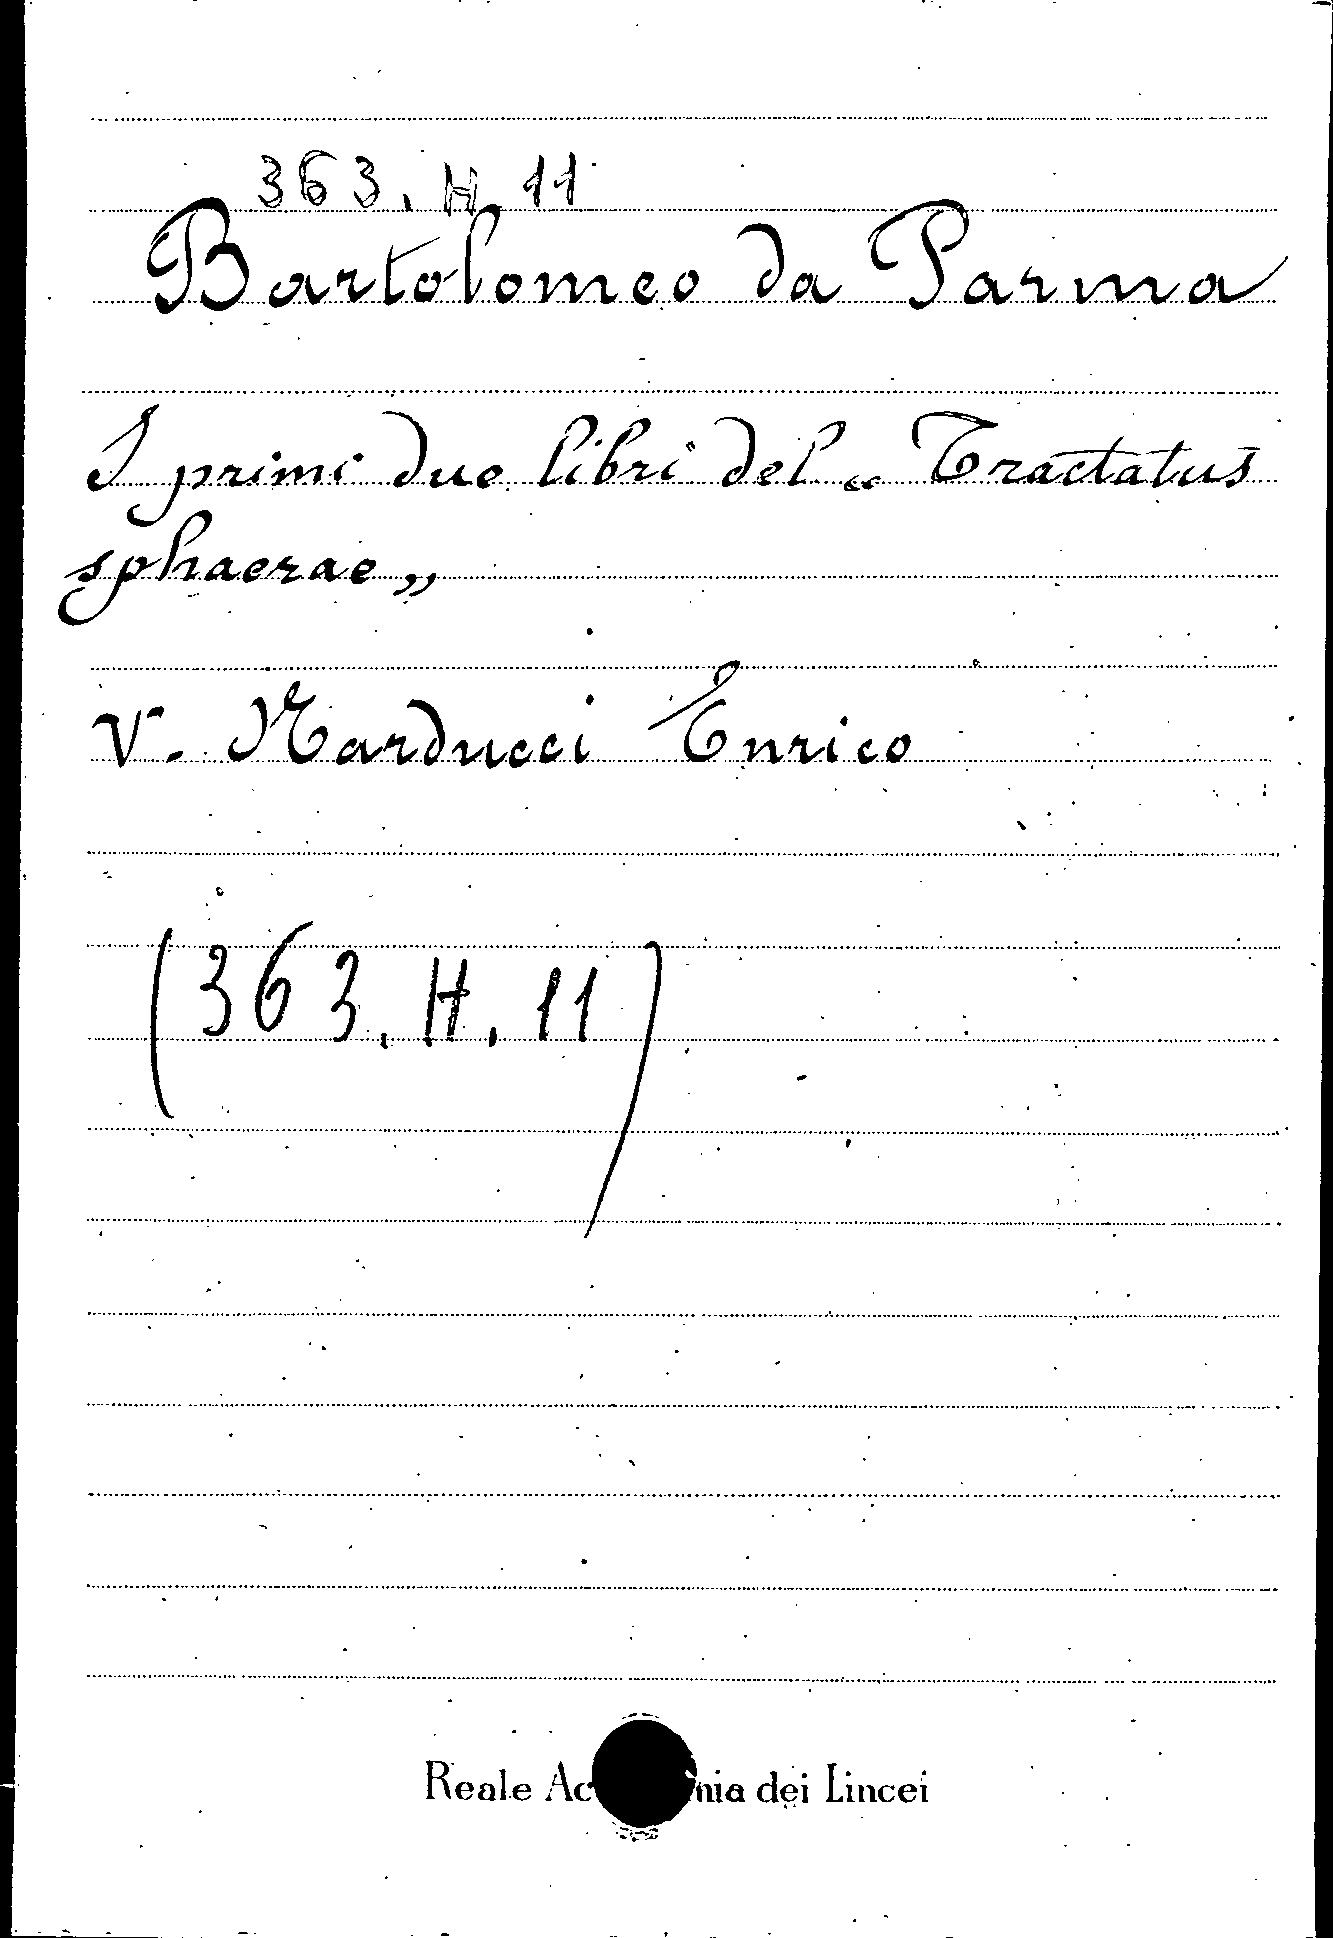 363. H 11
Bartolomeo da Parma
I primi due libri del „ Tractatus
sphaerae „
V. Narducci Enrico
(363. H. 11)
Reale Ac nia dei Lincei